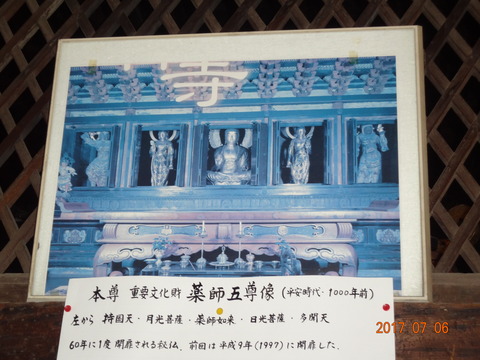 寺
本尊 重要文化財 薬師五尊像 (平安時代・1000年前)
左から 持国天・月光菩薩・薬師如来・日光菩薩・多聞天
60年に1度 開扉される秘仏、前回は平成9年(1997)に開扉した。
2017.07.06